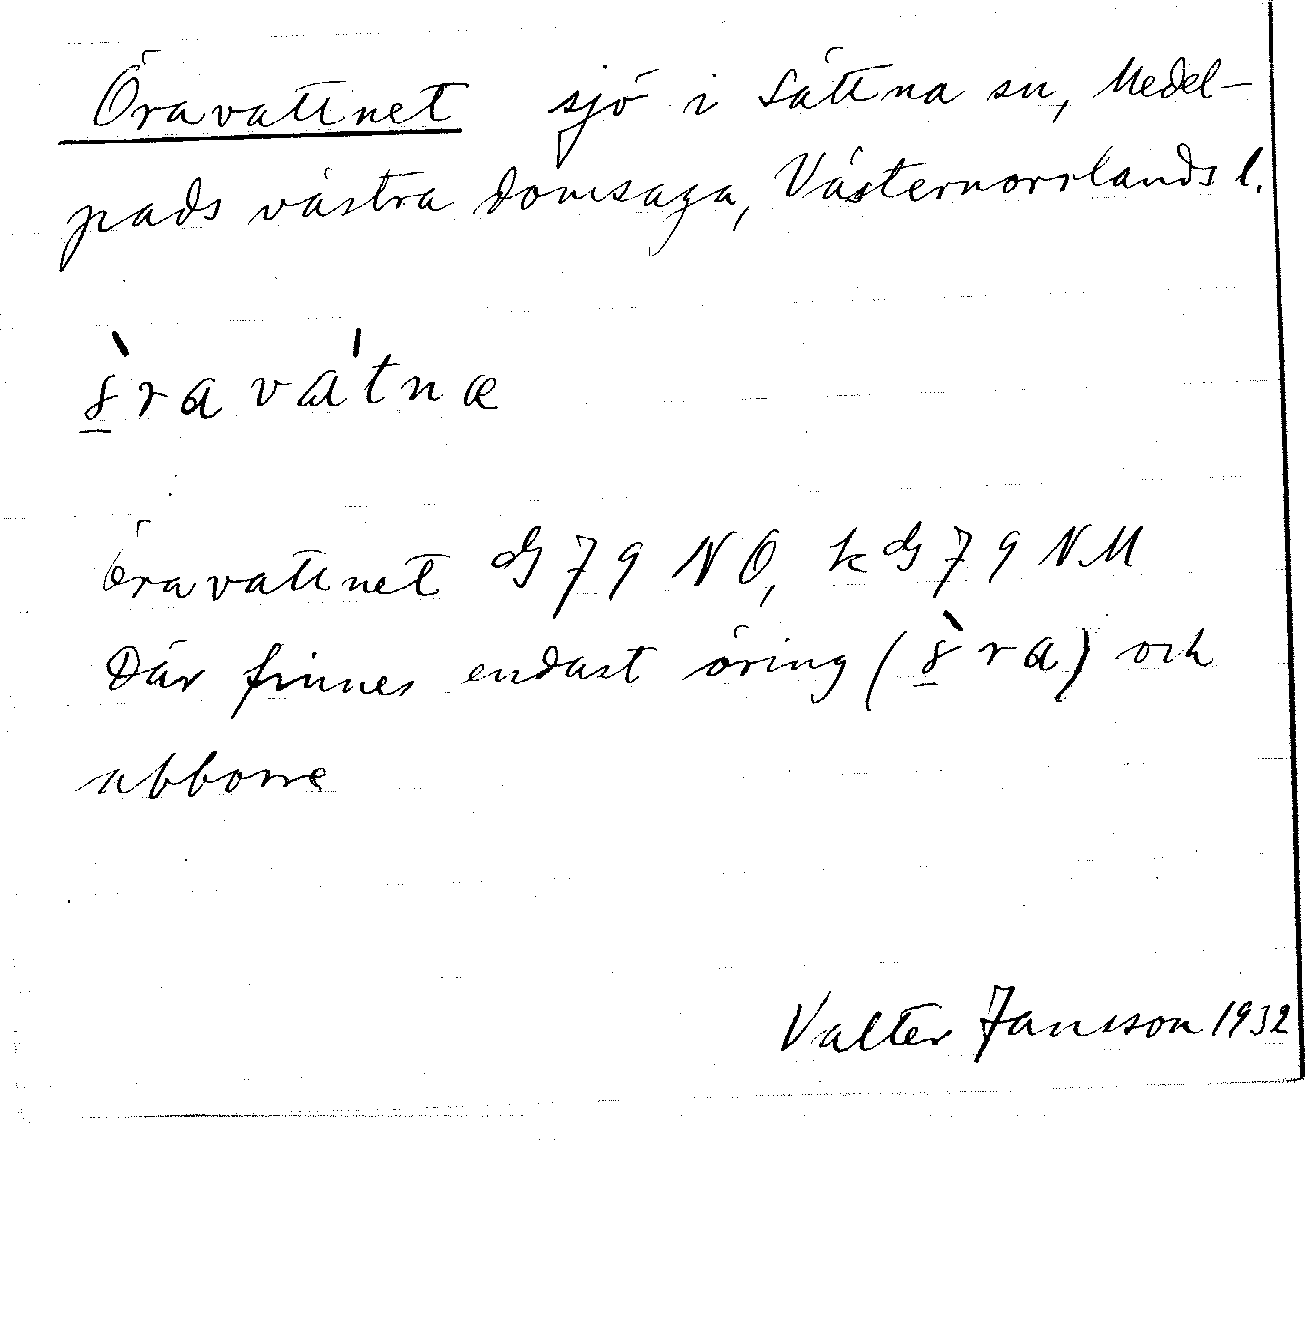 Öravattnet sjö i Sättna sn, Medel-
pads västra domsaga, Västernorrlands l.
Öravattnet dG 79 NO, k dG 79 NM
Där finnes endast öring ( ) och
abborre
Valter Jansson 1932